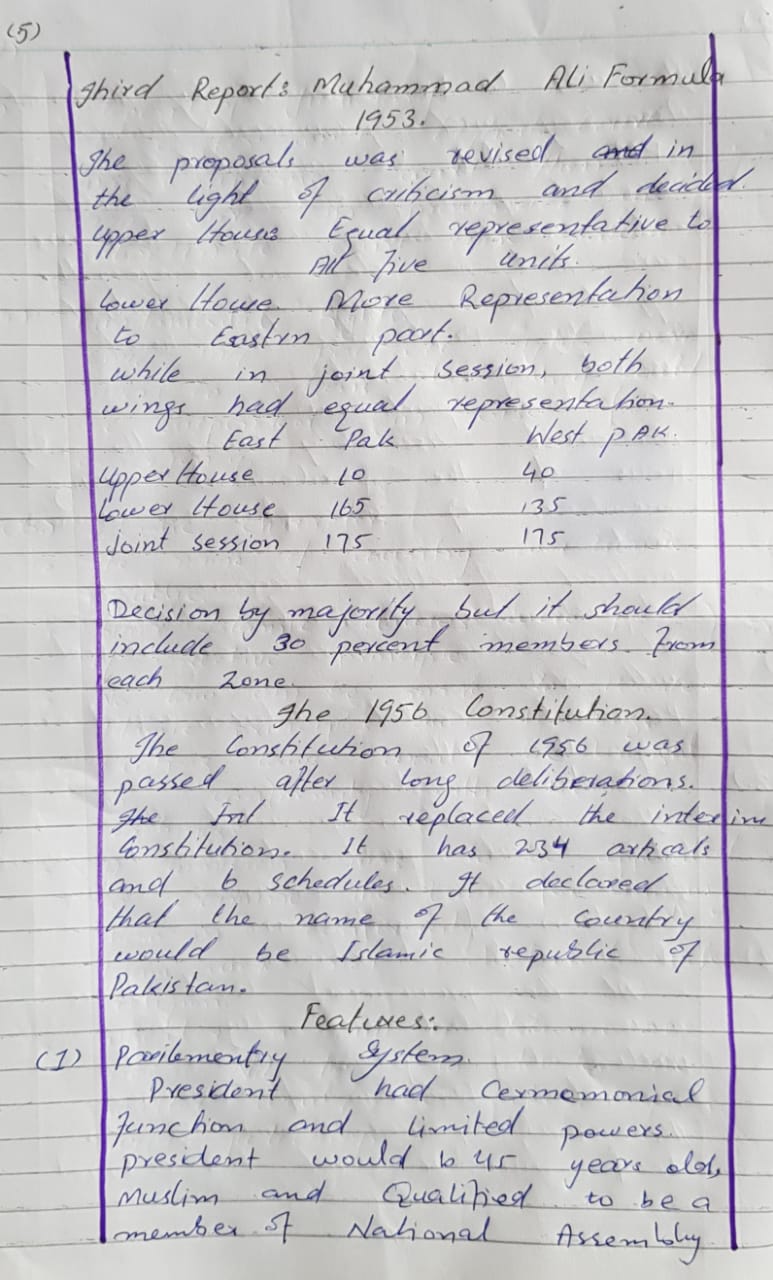 (5)
Third Report: Muhammad Ali Formula
1953.
The proposals was revised and in
the light of criticism and decided.
Upper House Equal representative to
All five units.
Lower House. More Representation
to Eastrn part.
while in joint session, both
wings had equal representation.
East Pak West PAK.
Upper House 10 40
Lower House 165 135
joint session 175 175
Decision by majority but it should
include 30 percent members from
each zone.
The 1956 Constitution.
The Constitution of 1956 was
passed after long deliberations.
The It replaced the interim
Constitution. It has 234 articals
and 6 schedules. It declared
that the name of the country
would be Islamic republic of
Pakistan.
Features:.
(1) Parilementry System.
President had Cermemonial
function and limited powers.
president would b 45 years old,
Muslim and Qualified to be a
member of National Assembly